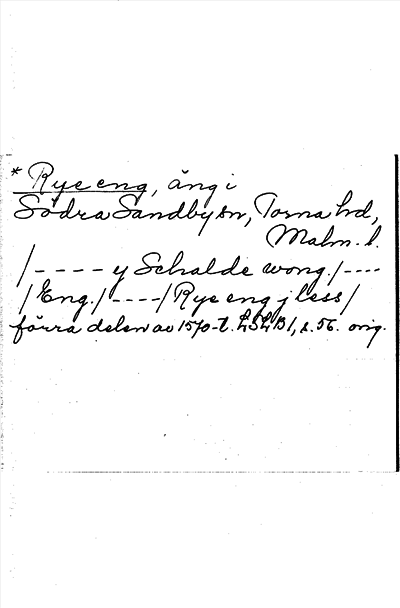 * Rye eng, äng i
Södra Sandby sn, Torna hd,
Malm. l.
/---- y Schalde wong./----
/Eng./----/Rye eng j less/
förra delen av 1570-t. LSLB1, s. 56. orig.